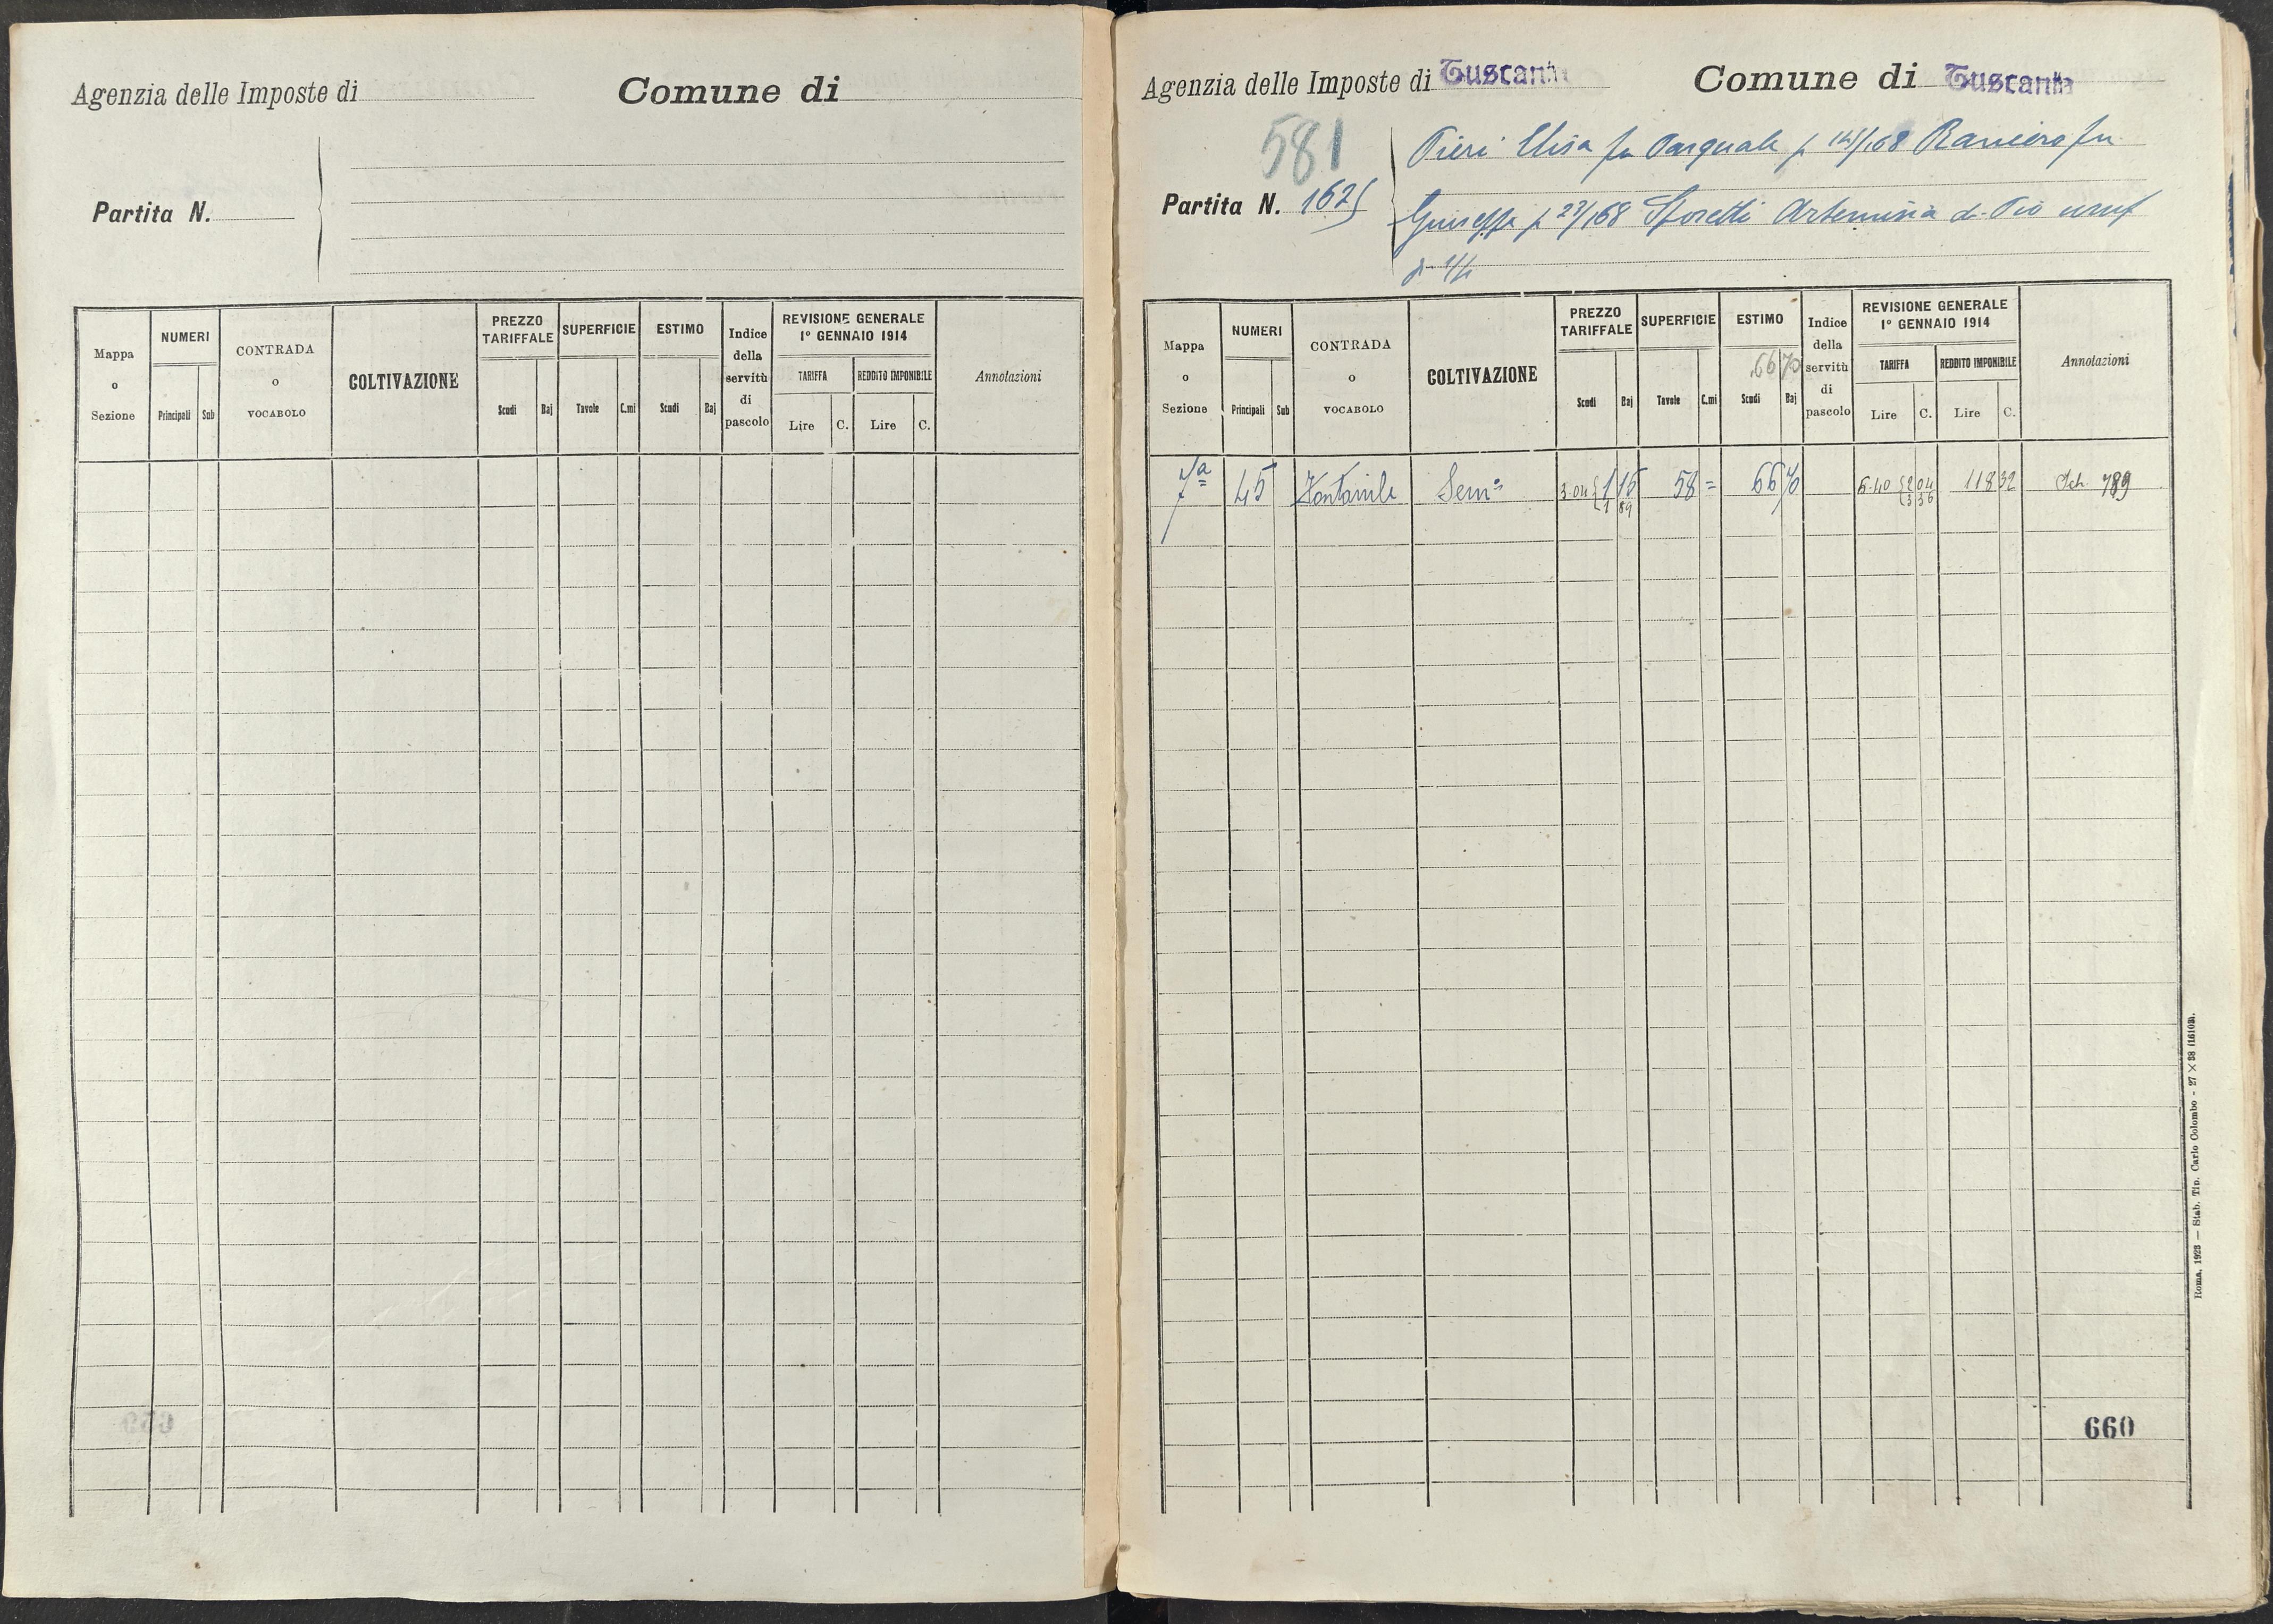 Agenzia delle Imposte di
Comune di
Partita N.
Mappa o Sezione
NUMERI
Principali
Sub
CONTRADA o VOCABOLO
COLTIVAZIONE
PREZZO TARIFFALE
Scudi
Baj
SUPERFICIE
Tavole
C.mi
ESTIMO
Scudi
Baj
Indice della servitù di pascolo
REVISIONE GENERALE
1° GENNAIO 1914
TARIFFA
Lire
C.
REDDITO IMPONIBILE
Lire
C.
Annotazioni
Agenzia delle Imposte di Tuscania
Comune di Tuscania
581
Partita N. 1625
Pieri Elisa fu Pasquale p 145/168 Raniero fu
Giuseppe p 23/168 Sforetti Artemisia di Pio usuf
di 1/4
Mappa o Sezione
NUMERI
Principali
Sub
CONTRADA o VOCABOLO
COLTIVAZIONE
PREZZO TARIFFALE
Scudi
Baj
SUPERFICIE
Tavole
C.mi
ESTIMO
66 70
Scudi
Baj
Indice della servitù di pascolo
REVISIONE GENERALE
1° GENNAIO 1914
TARIFFA
Lire
C.
REDDITO IMPONIBILE
Lire
C.
Annotazioni
7a 45 Fontanile Sem° 3.04 1 15 58 = 66 70 5.40 2 04 118 32 Sch 789
1 89 3 36
660
Roma, 1923 — Stab. Tip. Carlo Colombo - 27 × 38 (1610).